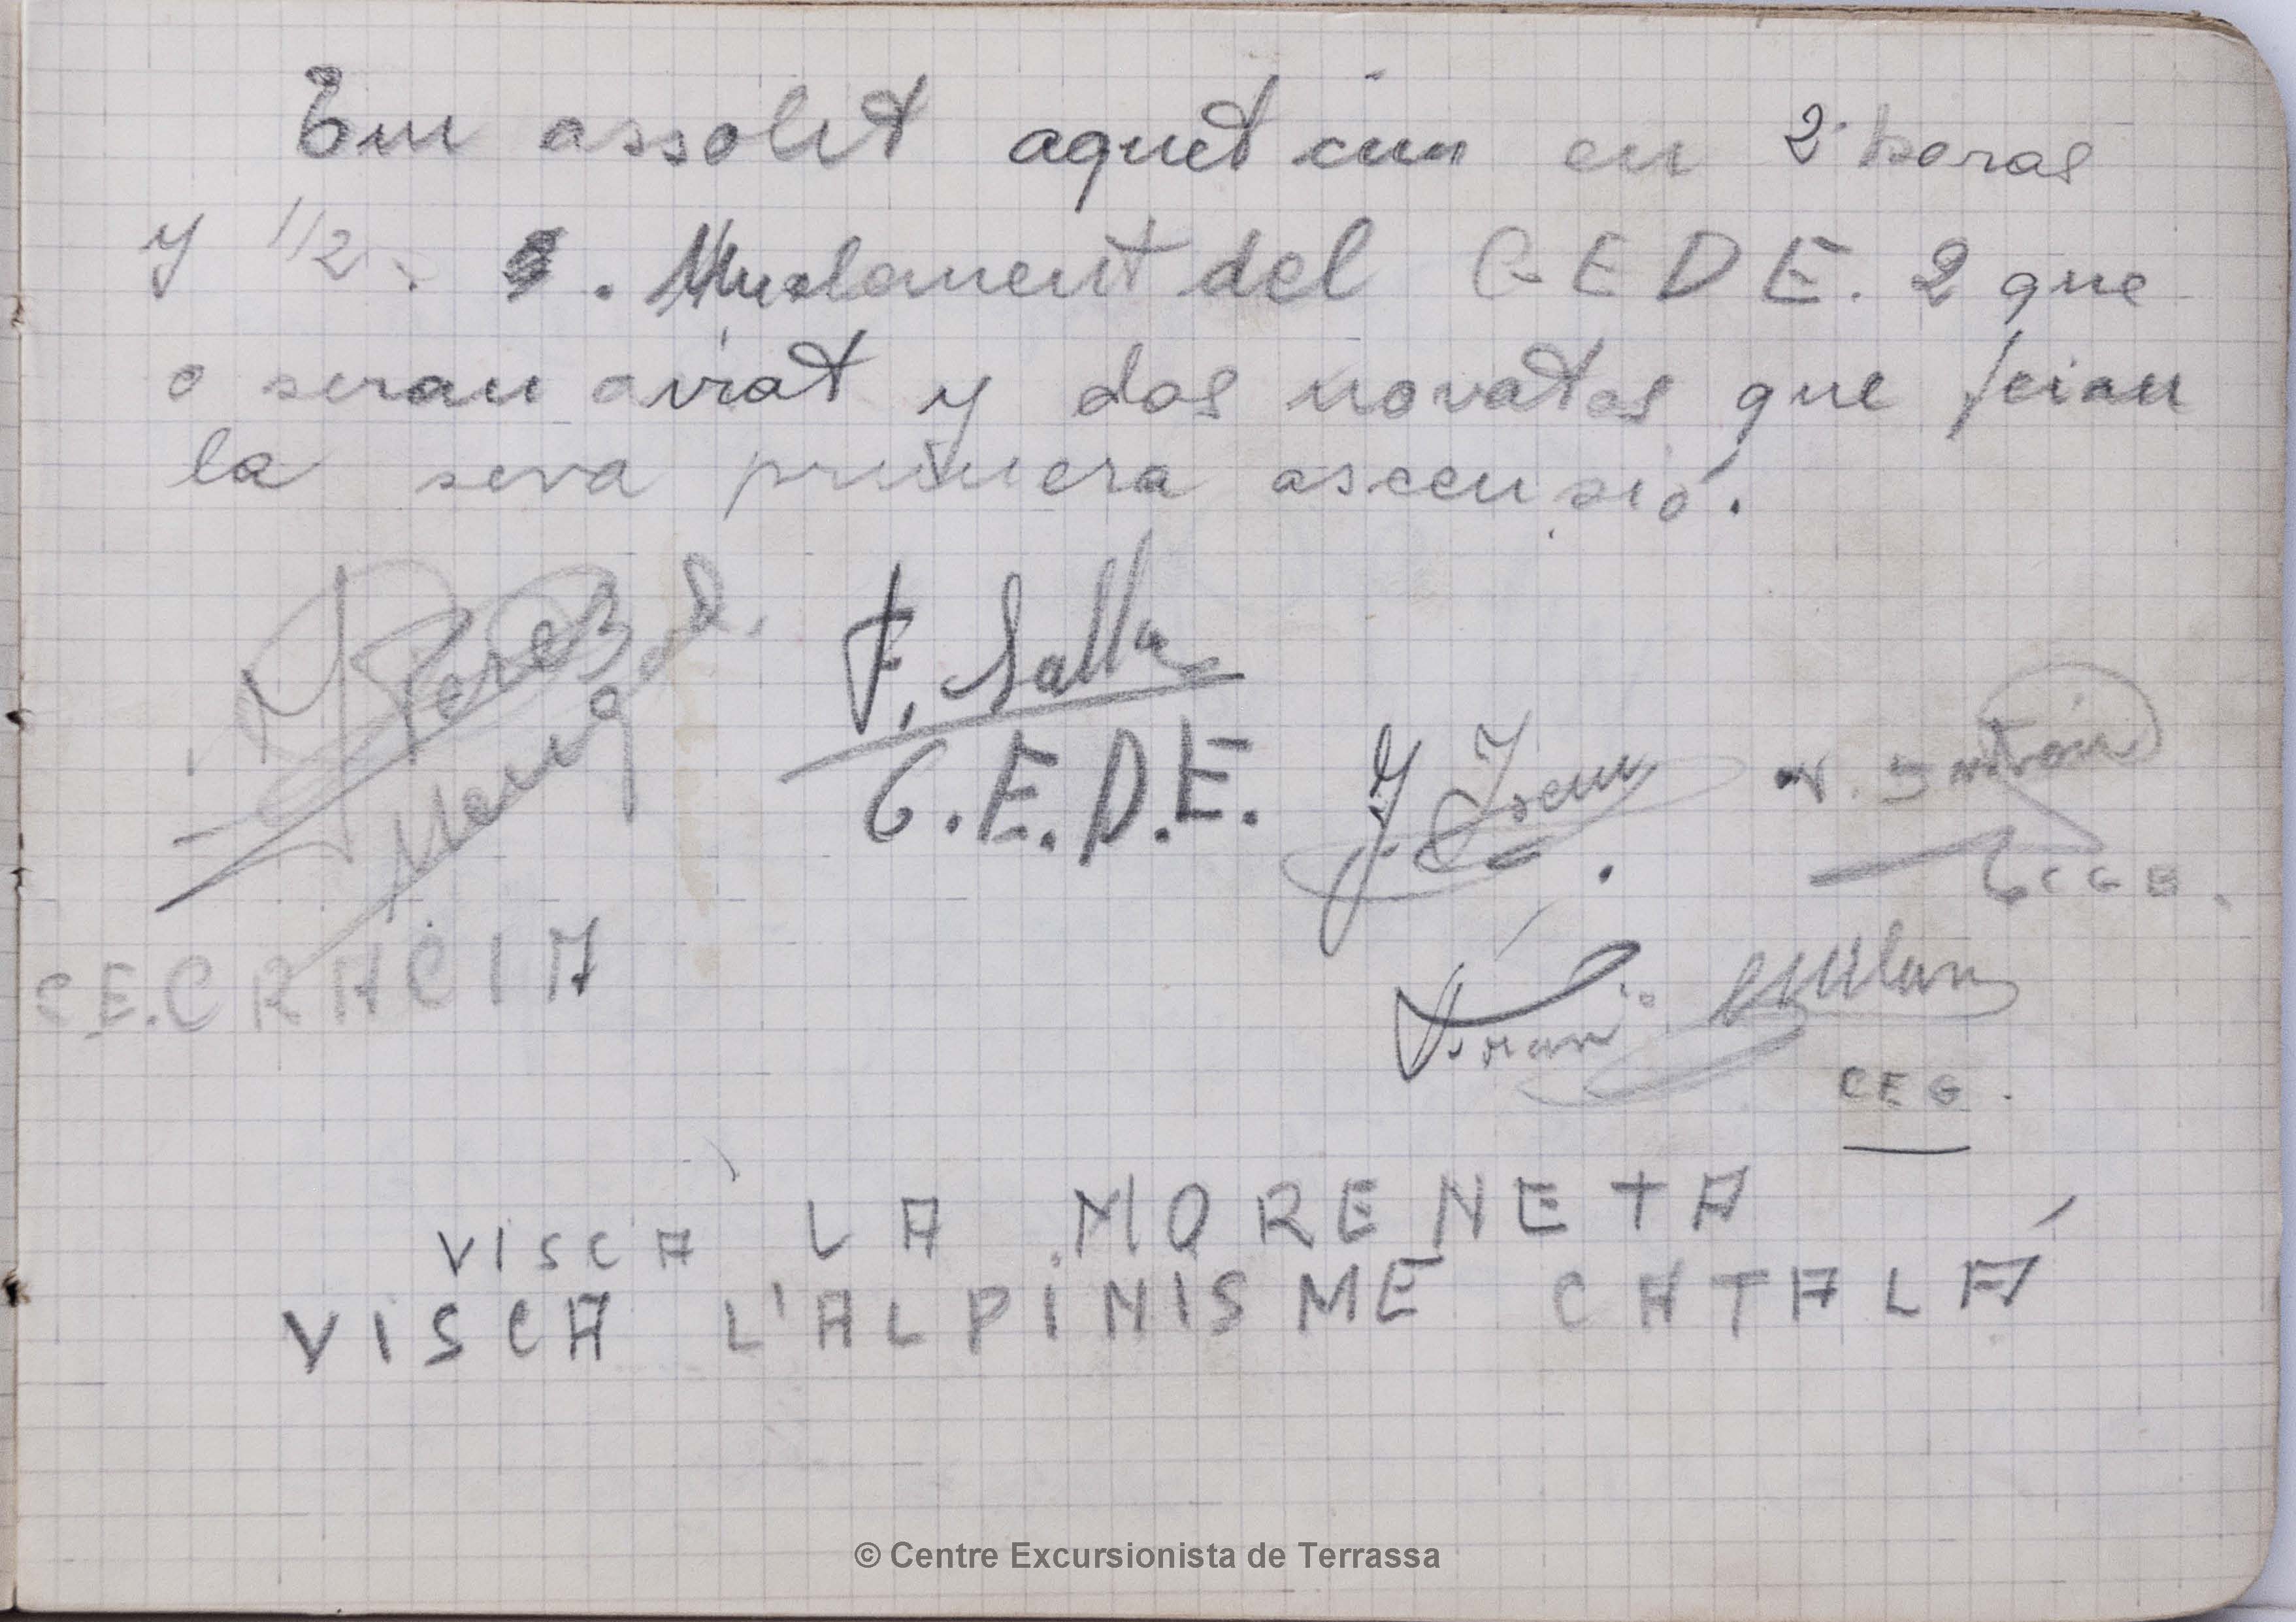 Em assolit aquet cim en 2 horas
y 1/2. . del G.E.D.E. 2 que
o seran aviat y dos novatos que feian
la seva primera ascensió.
Perez
F. Salla
G.E.D.E.
J Isern
C.E. GRACIA
CEG.
VISCA LA MORENETA
VISCA L'ALPINISME CATALÁ
© Centre Excursionista de Terrassa